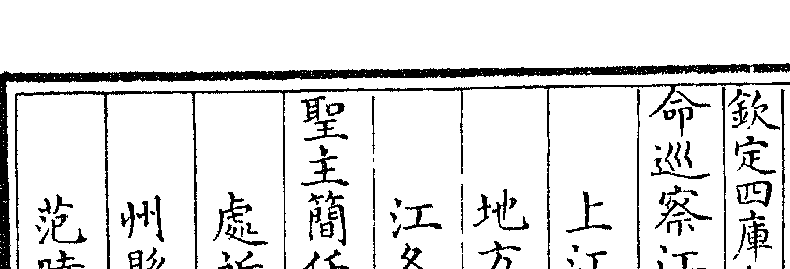 欽定四庫
命巡察江
上江
地方
江
聖主簡任
處
州縣
范時